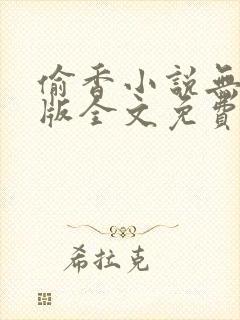 偷香小説無
版全文免費
希拉克